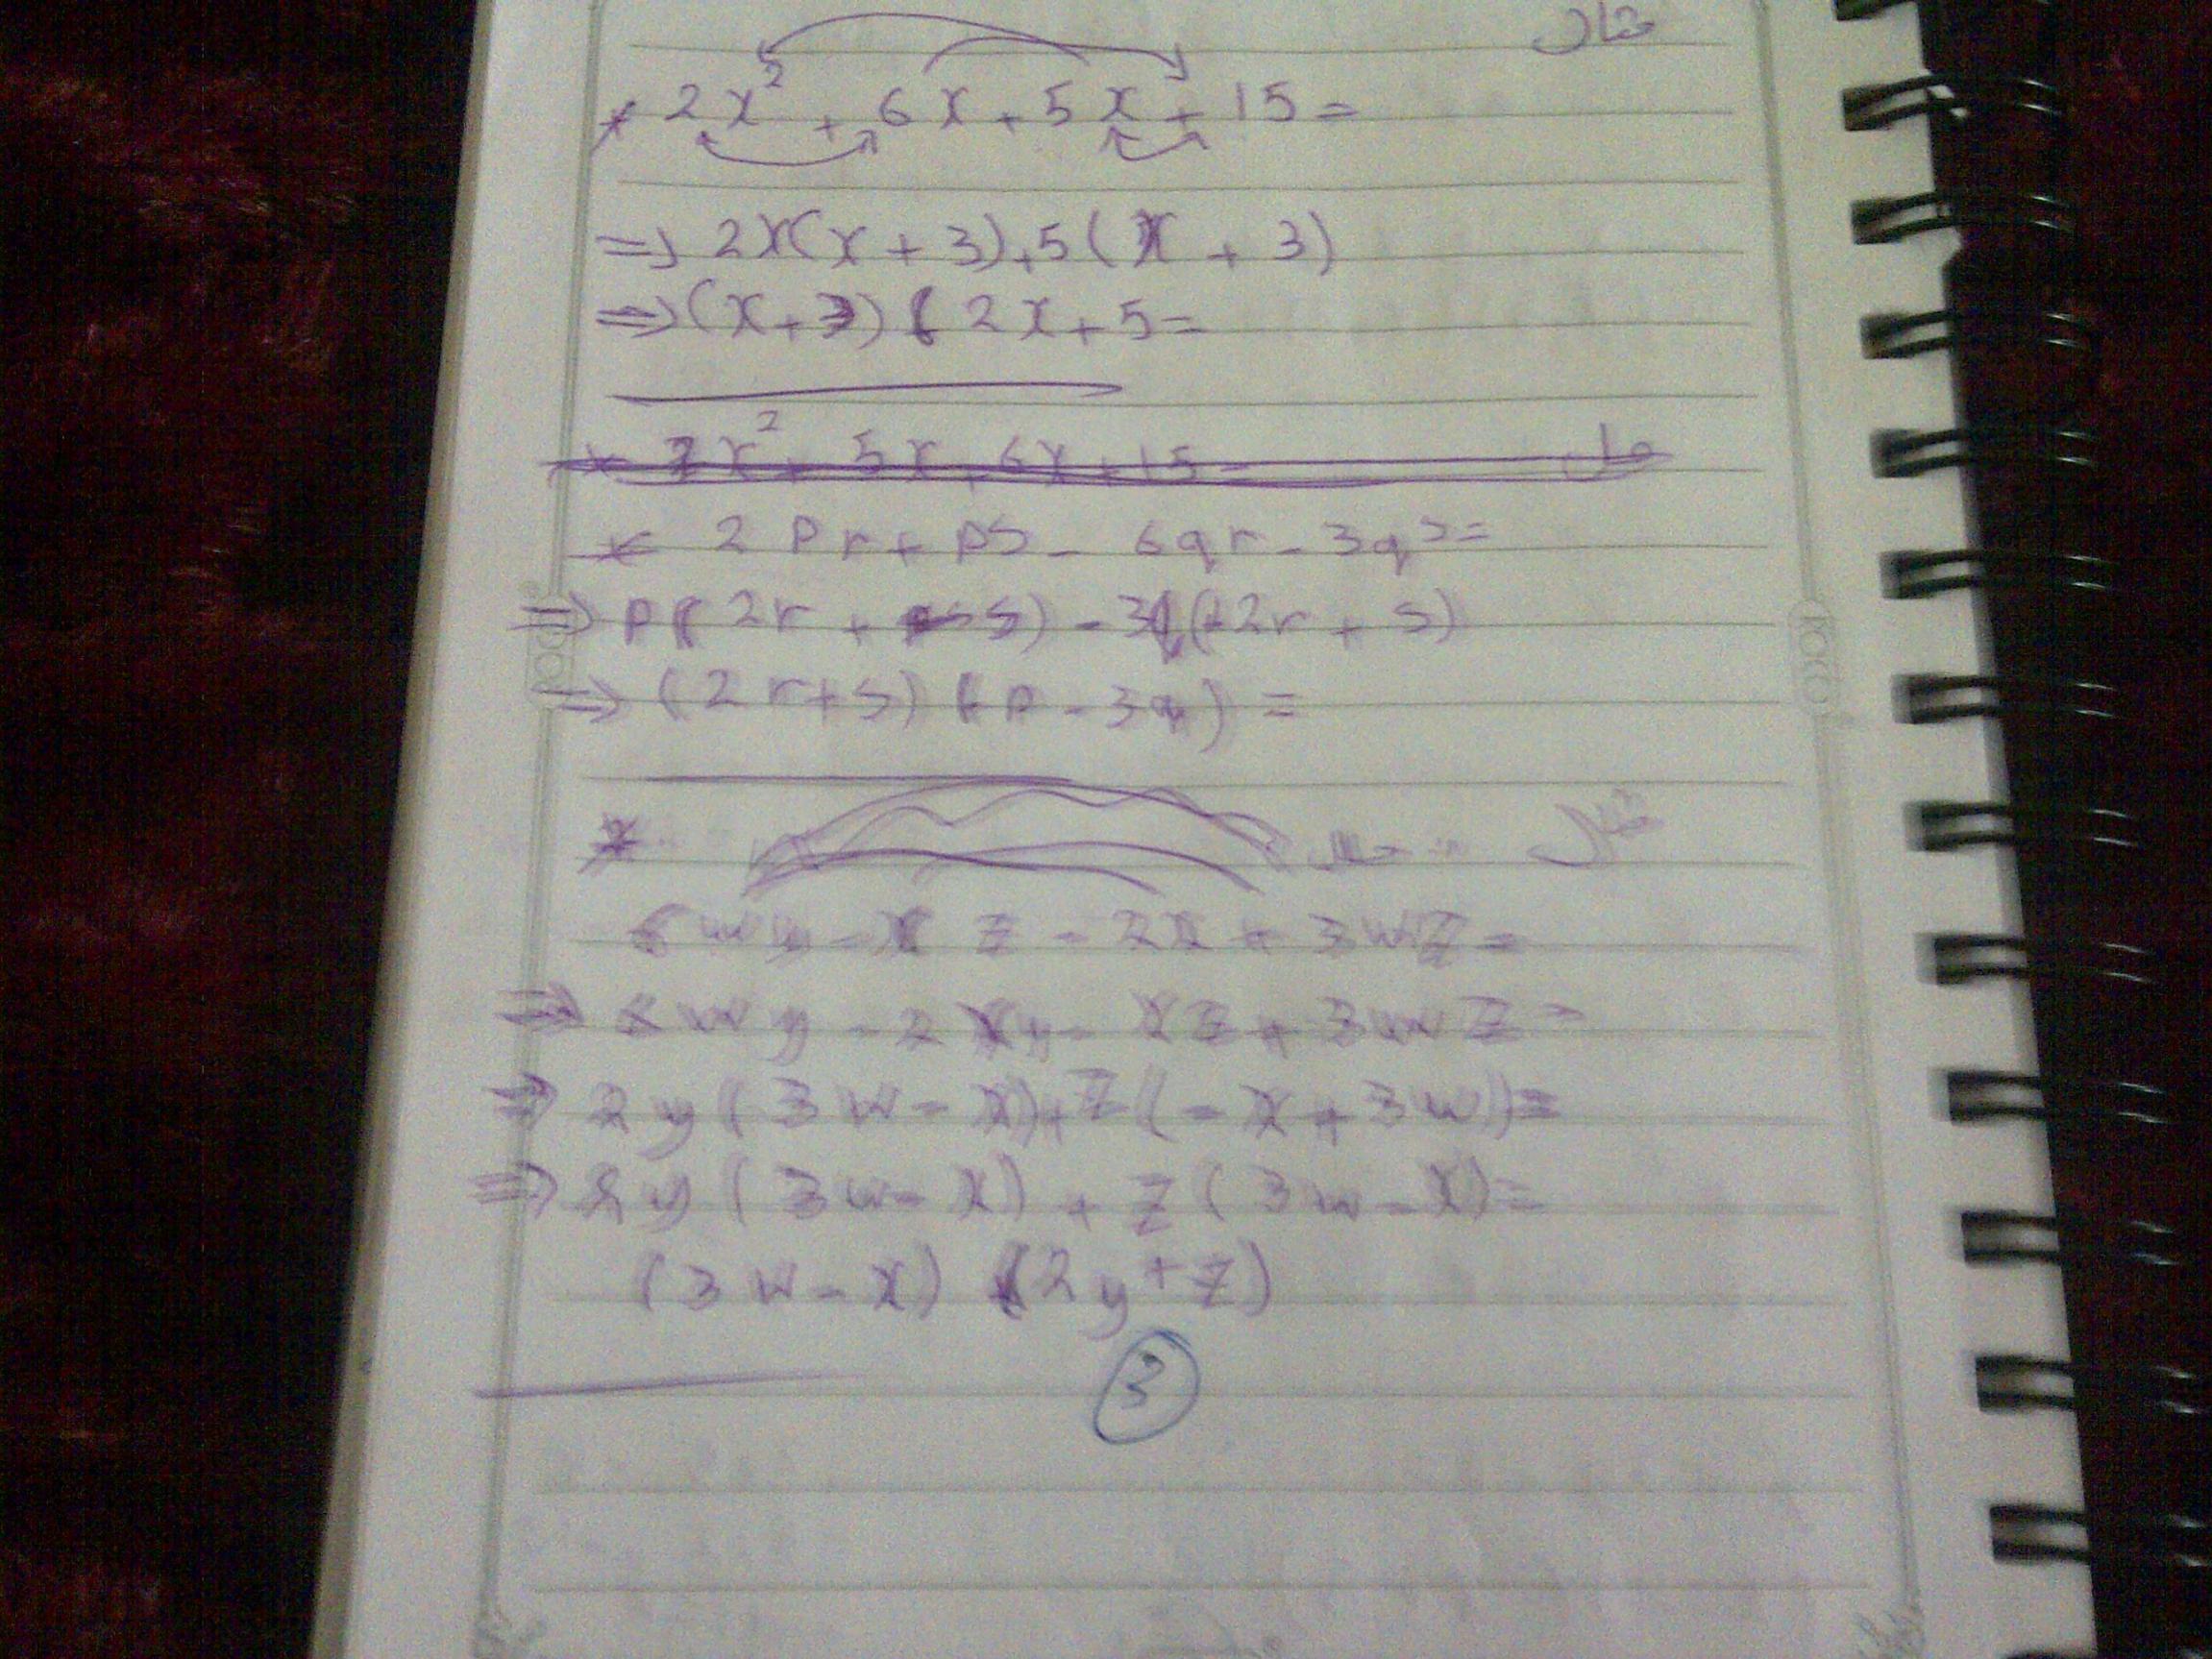 مثال
* 2x² + 6x + 5x + 15 =
⇒ 2x(x + 3) + 5(x + 3)
⇒ (x + 3) (2x + 5 =
* 2x² + 5x + 6x + 15
* 2 Pr + ps - 6qr - 3qs =
⇒ P(2r + s) - 3q(2r + s)
⇒ (2r + s) (p - 3q) =
* مثال
6wy - xz - 2x + 3wz =
⇒ 6wy - 2xy - xz + 3wz =
⇒ 2y(3w - x) + z(-x + 3w) =
⇒ 2y(3w - x) + z(3w - x) =
(3w - x) (2y + z)
3